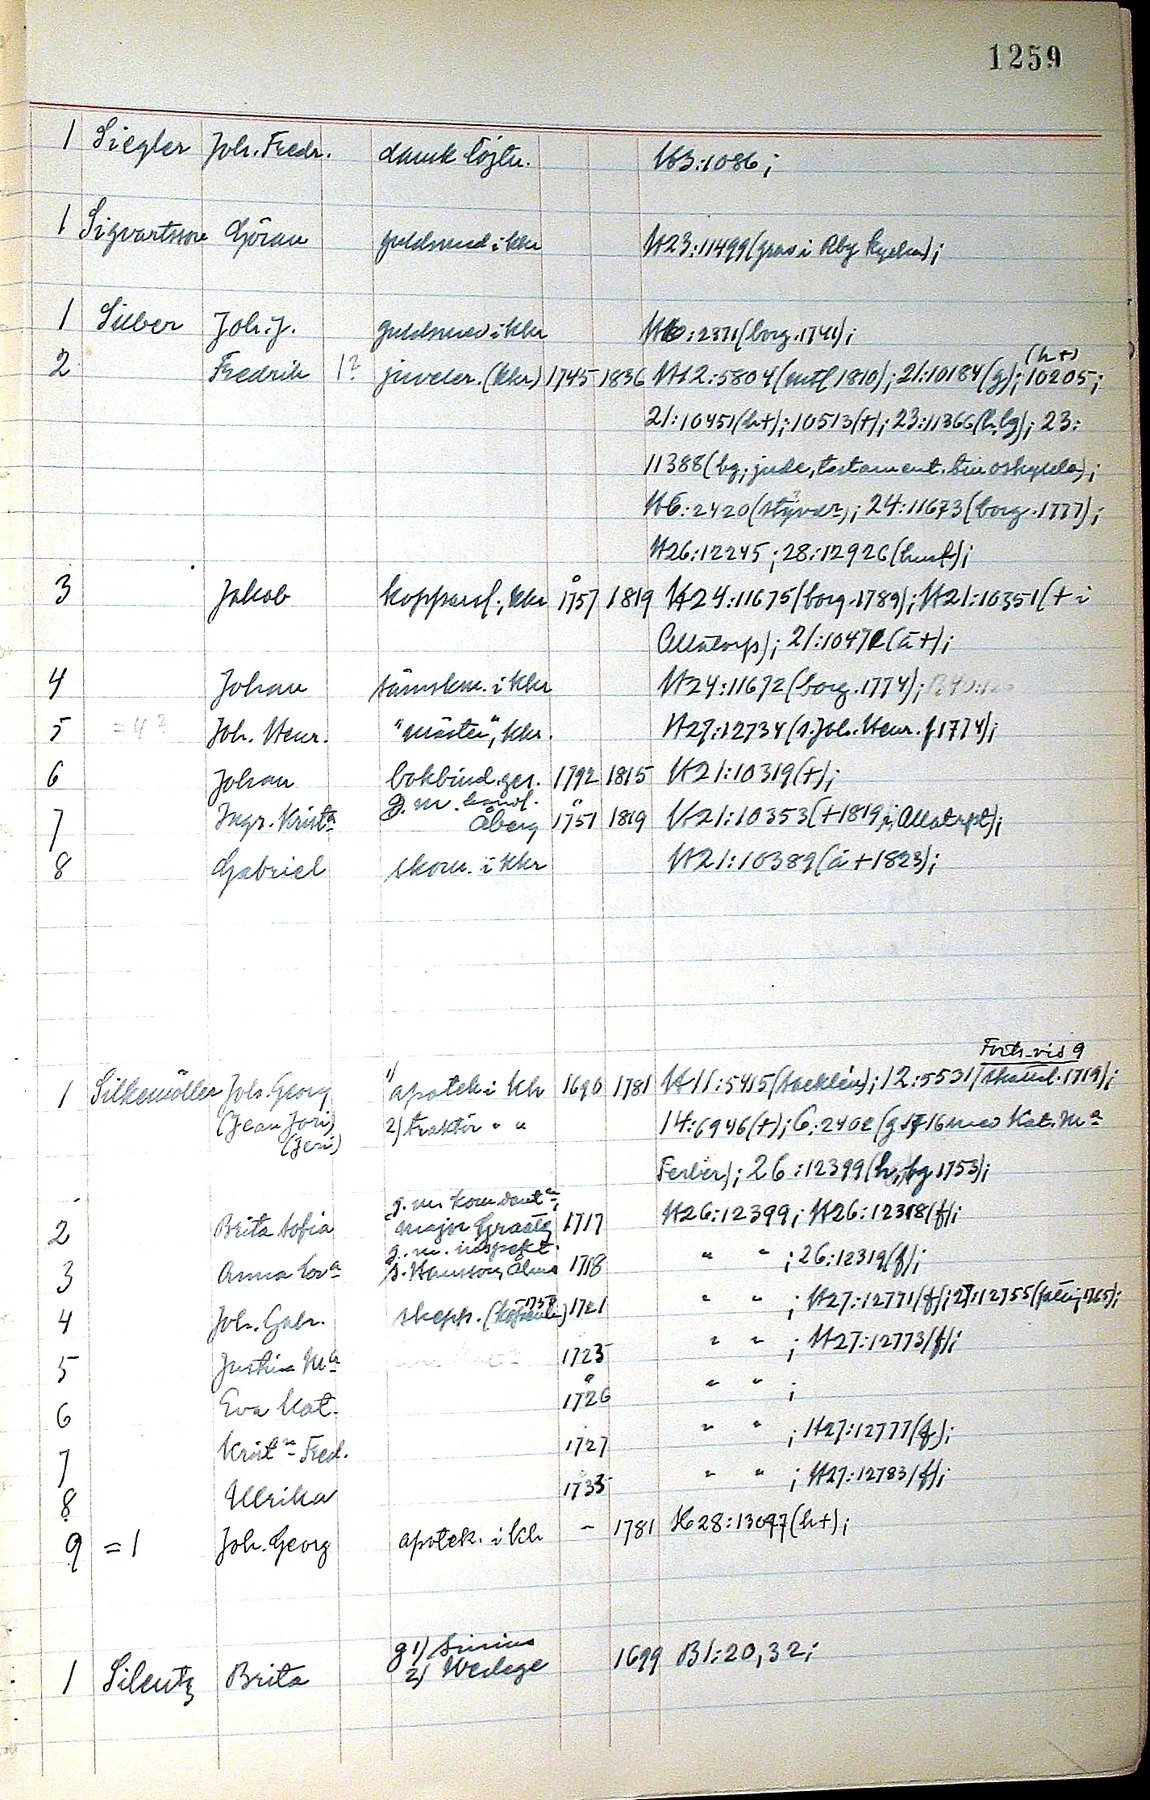 1259
1 Siegler Joh. Fredr. dansk löjtn. H3:1086;
1 Sigvartsson Göran guldsmed i Khr H23:11499 (grav i Aby kyrka);
1 Silber Joh. J. guldsmed i Khr H6:2371 (borg. 1741);
(h+)
2 Fredrik 1? juveler. (Khr) 1745 1836 H12:5804 (mtl 1810); 21:10184 (g); 10205;
21:10451 (h+); 10513 (+); 23:11366 (h, bg); 23:
11388 (bg; jude, testament. sin oskylda);
H6:2420 (styvdr); 24:11673 (borg. 1777);
H26:12245; 28:12926 (hust);
3 Jakob kopparsl., Khr 1757 1819 H24:11675 (borg. 1789); H21:10351 (+ i
Allatorp); 21:1047 (ä+);
4 Johan sämskm. i Khr H24:11672 (borg. 1774);
5 =4? Joh. Henr. "mäster", Khr. H27:12734 (s. Joh. Henr. f 1774);
6 Johan bokbind. ges. 1792 1815 H21:10319 (+);
g. m.
7 Ingr. Krista Åberg 1751 1819 H21:10353 (+1819 i Allatorp);
8 Gabriel skom. i Khr H21:10389 (ä+1823);
Forts. vid 9
1 Silkemöller Joh. Georg 1) apotek i Khr 1690 1781 H11:5415 (släktlén); 12:5531 (skattl. 1719);
(Jean Jori) 2) traktör " " 14:6946 (+); 6:2402 (g 1716 med Kat. Ma
(Jeri) Ferber); 26:12399 (h, bg 1753);
g. m. komdant
2 Brita Sofia major Graatz 1717 H26:12399; H26:12318 (f);
g. m. inspekt.
3 Anna Lova S. Hansson, Alma 1718 " " ; 26:12319 (f);
4 Joh. Gabr. skepp. 1721 " " ; H27:12771 (f); 27:12755 (1765);
5 Justina Ma 1723 " " ; H27:12773 (f);
6 Eva Kat. 1726 " " ;
7 Krista Fred. 1727 " " ; H27:12777 (f);
8 Ulrika 1733 " " ; H27:12783 (f);
9 =1 Joh. Georg apotek. i Kh – 1781 H28:13097 (h+);
g 1) Sinius
1 Silentz Brita 2) Wedege 1699 B1:20, 32;